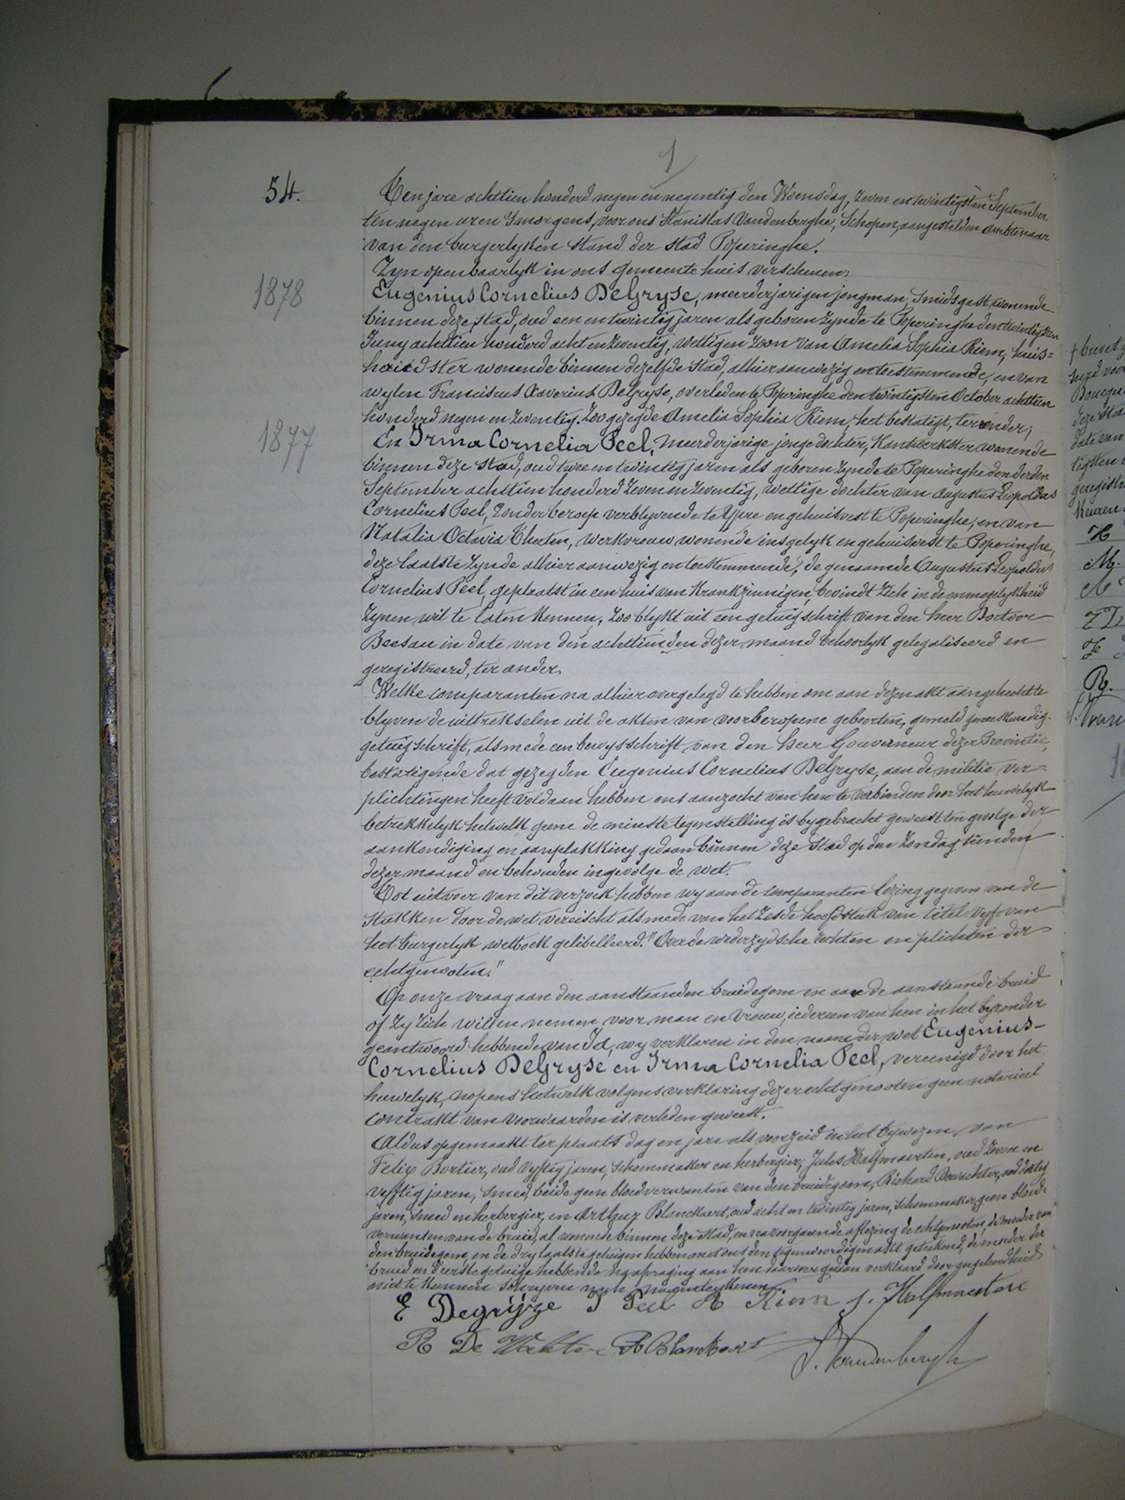 1
54.
Ten jare achttien honderd negen en negentig den Woensdag, zeven en twintigsten September
ten negen uren smorgens, voor ons Stanislas Vandenberghe, Schepen, aangestelden ambtenaar
van den burgerlyken stand der stad Poperinghe.
Zyn openbaarlyk in ons gemeente huis verschenen:
1878
Eugenius Cornelius DeGryse, meerderjarigen jongman, smidsgast wonende
binnen deze stad, oud een en twintig jaren als geboren zynde te Poperinghe den twintigsten
Juny achttien honderd acht en zeventig, wettigen zoon van Amelia Sophia Riem, huis=
houdster wonende binnen dezelfde stad, alhier aanwezig en toestemmende, en van
wylen Franciscus Xaverius DeGryse, overleden te Poperinghe den twintigsten October achttien
honderd negen en zeventig, zoo gezegde Amelia Sophia Riem, het bestatigt, ter ander;
1877
En Irma Cornelia Peel, meerderjarige jonge dochter, Kantwerkster wonende
binnen deze stad, oud twee en twintig jaren als geboren zynde te Poperinghe den derden
September achttien honderd zeven en zeventig, wettige dochter van Augustus Leopoldus
Cornelius Peel, zonder beroep verblyvende te Ypre en gehuisvest te Poperinghe, en van
Natalia Octavia Therten, werkvrouw wonende insgelyk en gehuisvest te Poperinghe,
deze laatste zynde alhier aanwezig en toestemmende, de genaamde Augustus Leopoldus
Cornelius Peel, geplaatst in een huis van Krankzinnigen, bevindt zich in de onmogelykheid
zynen wil te laten kennen, zoo blykt uit een getuigschrift van den heer Doctoor
in date van den achttienden dezer maand behoorlyk gelegaliseerd en
geregistreerd, ter ander.
Welke comparanten na alhier overgelegd te hebben om aan dezen akt aangehecht te
blyven de uittrekselen uit de akten van voorberoepene geboorten, gemeld geneeskundig
getuigschrift, alsmede een bewysschrift van den heer Gouverneur dezer Provintie,
bestatigende dat gezegden Eugenius Cornelius DeGryse, aan de militie ver=
plichtingen heeft voldaan hebben ons aanzocht van hen te verbinden door het huwelyk
betrekkelyk hetwelk geene de minste tegenstelling is bygebracht geweest ten gevolge der
aankondiging en aanplakking gedaan binnen deze stad op den Zondag tienden
dezer maand en behouden ingevolge de wet.
Tot uitvoer van dit verzoek hebben wy aan de comparanten lezing gegeven van de
stukken door de wet vereischt alsmede van het zesde hoofdstuk van titel vyf van
het burgerlyk wetboek gelibelleerd: "Over de wederzydsche rechten en plichten der
echtgenooten."
Op onze vraag aan den aanstaanden bruidegom en aan de aanstaande bruid
of zy zich willen nemen voor man en vrouw, iedereen van hen in het byzonder
geantwoord hebbende van Ja, wy verklaren in den naam der wet Eugenius
Cornelius DeGryse en Irma Cornelia Peel, vereenigd door het
huwelyk, nopens hetwelk volgens verklaring dezer echtgenooten geen notarieel
contrakt van voorwaarden is verleden geweest.
Aldus opgemaakt ter plaats dag en jare als voorzeid in het bywezen van
Felix Bortier, oud vyftig jaren, schoenmaker en herbergier, Jules Halfmaerten, oud zeven en
vyftig jaren, smid, beide geen bloedverwanten van den bruidegom, Richard Dewachter, oud dertig
jaren, smid en herbergier, en Arthur Blanckaert, oud acht en twintig jaren, schoenmaker, geen bloed=
verwanten van de bruid, al wonende binnen deze stad, en na voorgaande aflezing de echtgenooten, de moeder van
den bruidegom, en de dry laatste getuigen hebben met ons den tegenwoordigen akt geteekend, de moeder der
bruid en d'eerste getuige hebbende na afvraging aan hen daarover gedaan verklaard door ongeleerdheid
niet te kunnen schryven
E Degrijze I Peel A Riem J. Halfmaerten
R De Wachter A Blanckaert S. Vandenberghe